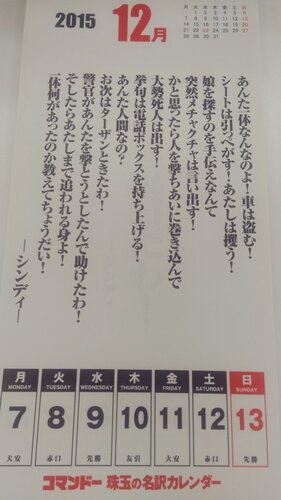 2015 12月
月 火 水 木 金 土 日
1 2 3 4 5 6
7 8 9 10 11 12 13
14 15 16 17 18 19 20
21 22 23 24 25 26 27
28 29 30 31
あんた一体なんなのよ！車は盗む！
シートは引っぺがす！あたしは攫う！
娘を探すのを手伝えなんて
突然メチャクチャは言い出す！
かと思ったら人を撃ちあいに巻き込んで
大勢死人は出す！
挙句は電話ボックスを持ち上げる！
あんた人間なの？
お次はターザンときたわ！
警官があんたを撃とうとしたんで助けたわ！
そしたらあたしまで追われる身よ！
一体何があったのか教えてちょうだい！
―シンディ―
月 火 水 木 金 土 日
MONDAY TUESDAY WEDNESDAY THURSDAY FRIDAY SATURDAY SUNDAY
7 8 9 10 11 12 13
大安 赤口 先勝 友引 大安 赤口 先勝
コマンドー 珠玉の名訳カレンダー